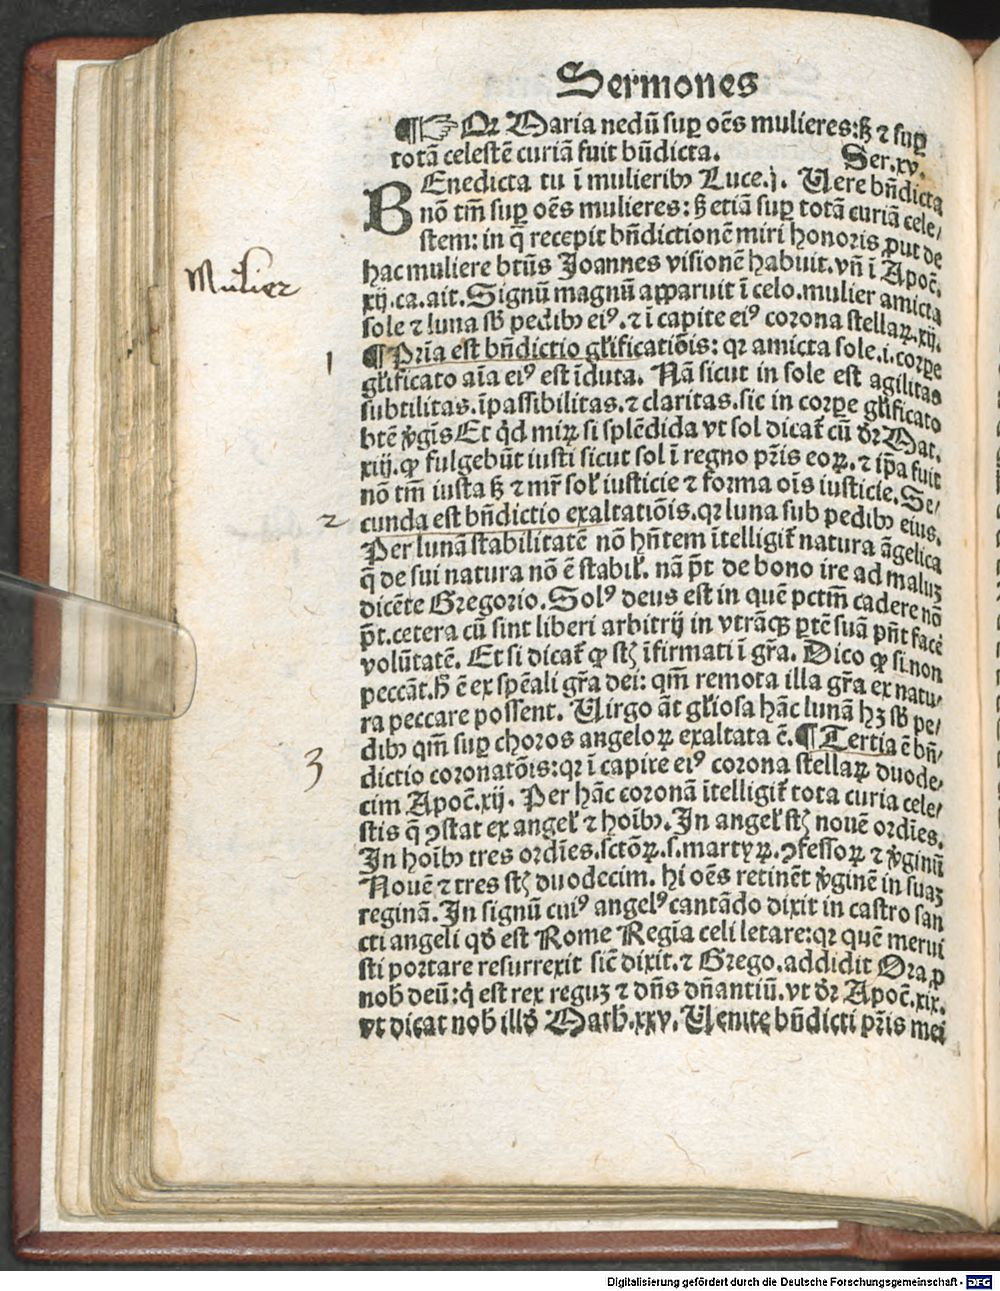 Sermones
¶☞ Qꝛ Maria nedū suꝑ oēs mulieres:sꝫ ⁊ suꝑ
totā celestē curiā fuit bn̄dicta. Ser.xv.
BEnedicta tu ī mulieribꝰ Luce.j. Uere bn̄dicta
nō tm̄ suꝑ oēs mulieres: sꝫ etiā suꝑ totā curiā cele/
stem: in q̄ recepit bn̄dictionē miri honoris ꝓut de
hac muliere btūs Joannes visionē habuit.vn̄ ī Apoc̄.
xij.ca.ait.Signū magnū apparuit ī celo.mulier amicta
sole ⁊ luna sb̄ pedibꝰ eiꝰ.⁊ ī capite eiꝰ corona stellaꝝ.xij.
¶Prīa est bn̄dictio gl̄ificatiōis: qꝛ amicta sole.i.corpe
gl̄ificato aīa eiꝰ est īduta. Nā sicut in sole est agilitas
subtilitas.īpassibilitas.⁊ claritas.sic in corpe gl̄ificato
btē v̄gīs Et qͥd miꝝ si splēdida vt sol dicat̄ cū dꝛ Mat.
xiij.ꝙ fulgebūt iusti sicut sol ī regno pr̄is eoꝝ.⁊ ip̄a fuit
nō tm̄ iusta sꝫ ⁊ mr̄ sol̄ iusticie ⁊ forma oīs iusticie.Se/
cunda est bn̄dictio exaltatiōis.qꝛ luna sub pedibꝰ eius.
Per lunā stabilitatē nō hn̄tem ītelligit̄ natura āgelica
q̄ de sui natura nō ē stabil̄. nā p̄t de bono ire ad maluꝫ
dicēte Gregorio.Solꝰ deus est in quē pctm̄ cadere nō
p̄t.cetera cū sint liberi arbitrij in vtrāqꝫ ꝑtē suā pn̄t face
volūtatē. Et si dicat̄ ꝙ st̄ īfirmati ī gr̄a. Dico ꝙ si non
peccāt.h̄ ē ex spēali gr̄a dei: qm̄ remota illa gr̄a ex natu/
ra peccare possent. Uirgo āt gl̄iosa hāc lunā hꝫ sb̄ pe/
dibꝰ qm̄ suꝑ choros angeloꝝ exaltata ē.¶Tertia ē bn̄/
dictio coronatōis:qꝛ ī capite eiꝰ corona stellaꝝ duode/
cim Apoc̄.xij. Per hāc coronā ītelligit̄ tota curia cele/
stis q̄ ꝯstat ex angel̄ ⁊ hoībꝰ.In angel̄ st̄ nouē ordīes.
In hoībꝰ tres ordīes.sctōꝝ.s.martyꝝ.ꝯfessoꝝ ⁊ v̄ginū
Nouē ⁊ tres st̄ duodecim. hi oēs retinēt v̄ginē in suaꝫ
reginā.In signū cuiꝰ angelꝰ cantādo dixit in castro san
cti angeli qd̄ est Rome Regīa celi letare:qꝛ quē merui
sti portare resurrexit sic̄ dixit.⁊ Grego.addidit Ora ꝓ
nob̄ deū:qͥ est rex reguꝫ ⁊ dn̄s dn̄antiū.vt dꝛ Apoc̄.xix.
vt dicat nob̄ illd̄ Math.xxv. Uenite bn̄dicti pr̄is mei
Mulier
1
2
3
Digitalisierung gefördert durch die Deutsche Forschungsgemeinschaft - DFG